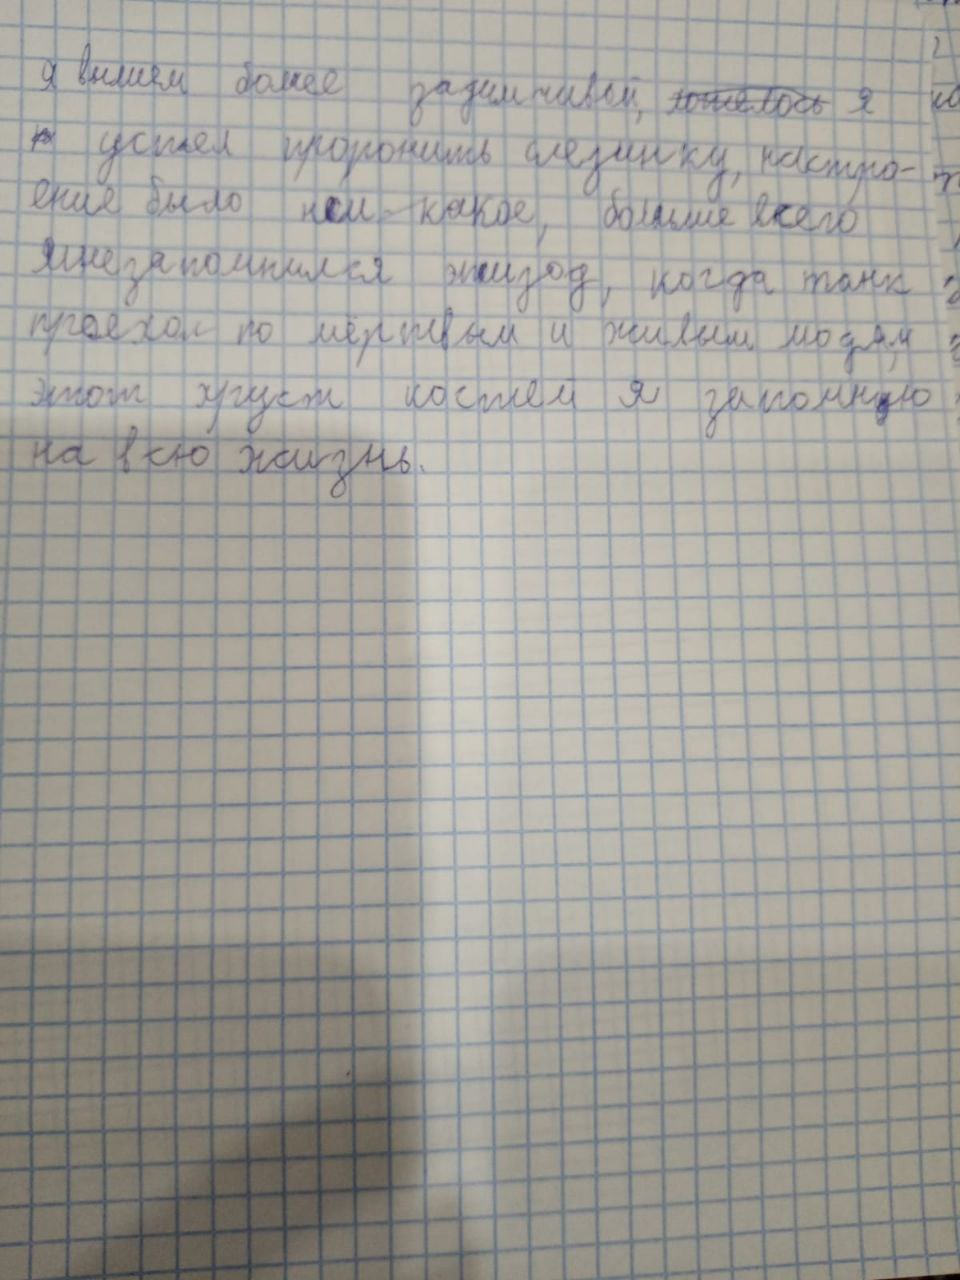 я вышел более задумчивой, хотелось я
успел проронить слезинку, настро-
ение было ни какое, больше всего
мне запомнился эпизод, когда танк
проехал по мёртвым и живым людям,
этот хруст костей я запомню
на всю жизнь.